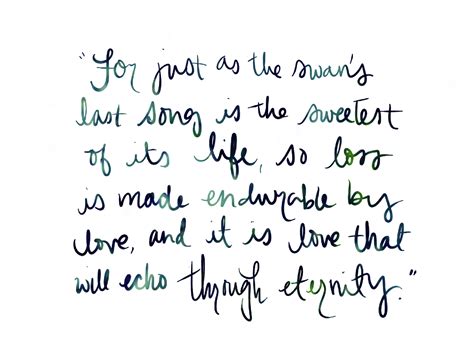 "For just as the swan's
last song is the sweetest
of its life, so loss
is made endurable by
love, and it is love that
will echo through eternity."